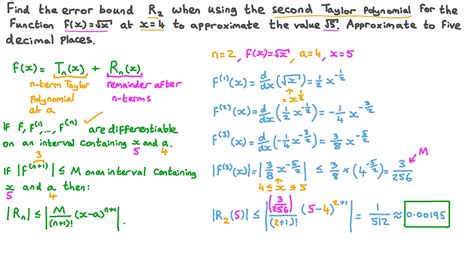 Find the error bound R₂ when using the second Taylor Polynomial for the
Function f(x)=√x at x=4 to approximate the value √5. Approximate to Five
decimal places.
n=2, F(x)=√x, a=4, x=5
F(x) = Tₙ(x) + Rₙ(x)
n-term Taylor Polynomial at a
remainder after n-terms
If F, F⁽¹⁾, ..., F⁽ⁿ⁾ are differentiable
on an interval containing x and a.
5 4
3
If |F⁽ⁿ⁺¹⁾| ≤ M on an interval containing
x and a then:
5 4
|Rₙ| ≤ |M/(n+1)! (x-a)ⁿ⁺¹|.
F⁽¹⁾(x) = d/dx(√x) = 1/2 x^(-1/2)
= x^(1/2)
F⁽²⁾(x) = d/dx(1/2 x^(-1/2)) = -1/4 x^(-3/2)
F⁽³⁾(x) = d/dx(-1/4 x^(-3/2)) = 3/8 x^(-5/2)
M
|F⁽³⁾(x)| = |3/8 x^(-5/2)| ≤ 3/8 × (4^(-5/2)) = 3/256
4 ≤ x ≤ 5
|R₂(5)| ≤ |(3/256)/(2+1)! (5-4)²⁺¹| = 1/512 ≈ 0.00195